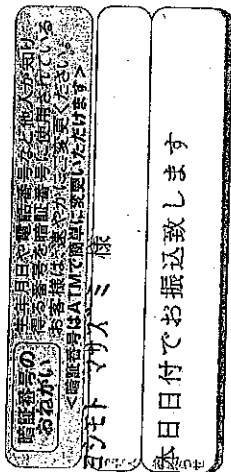 暗証番号の
おねがい
生年月日や電話番号など他人が知り
得る番号を暗証番号に使用されている
お客様は、速やかにご変更ください。
<暗証番号はATMで簡単に変更いただけます>
マサズミ 様
本日日付でお振込致します